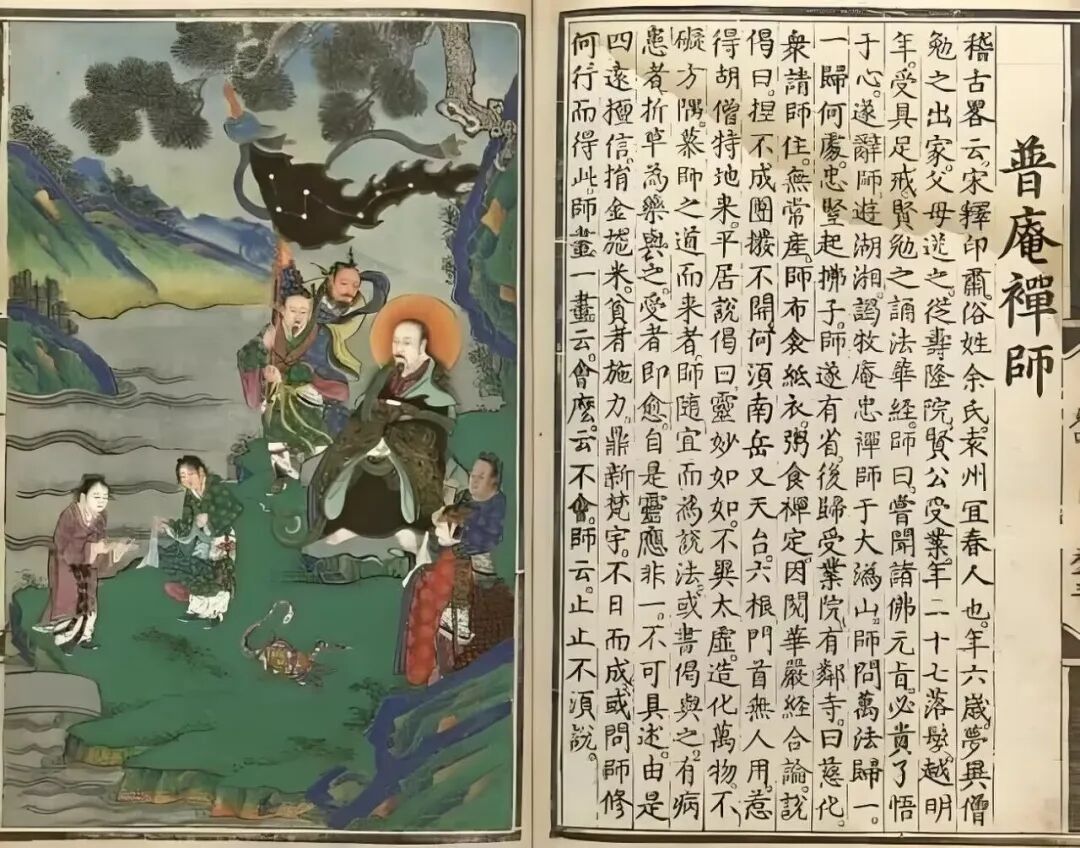 普庵禪師
稽古畧云宋釋印肅。俗姓余氏。袁州宜春人也。年六歲。夢異僧
勉之出家。父母送之。從壽隆院賢公受業。年二十七落髮。越明
年。受具足戒。賢勉之誦法華經。師曰。嘗聞諸佛元旨。必貴了悟
于心。遂辭師遊湖湘。謁牧庵忠禪師于大溈山。師問萬法歸一。
一歸何處。忠豎起拂子。師遂有省。後歸受業院。有鄰寺。曰慈化。
衆請師住。無常産。師布衾紙衣。粥食禪定。因閱華嚴經合論。說
偈曰。揑不成團撥不開。何須南岳又天台。六根門首無人用。惹
得胡僧特地来。平居說偈曰。靈妙如如。不異太虛。造化萬物。不
礙方隅。慕師之道而来者。師隨宜而為說法。或書偈與之。有病
患者。折草為藥與之。受者即愈。自是靈應非一。不可具述。由是
四遠擅信。捐金施米。貧者施力。鼎新梵宇。不日而成。或問師修
何行而得此。師畫一畫。云會麼。云不會。師云止止不須說。